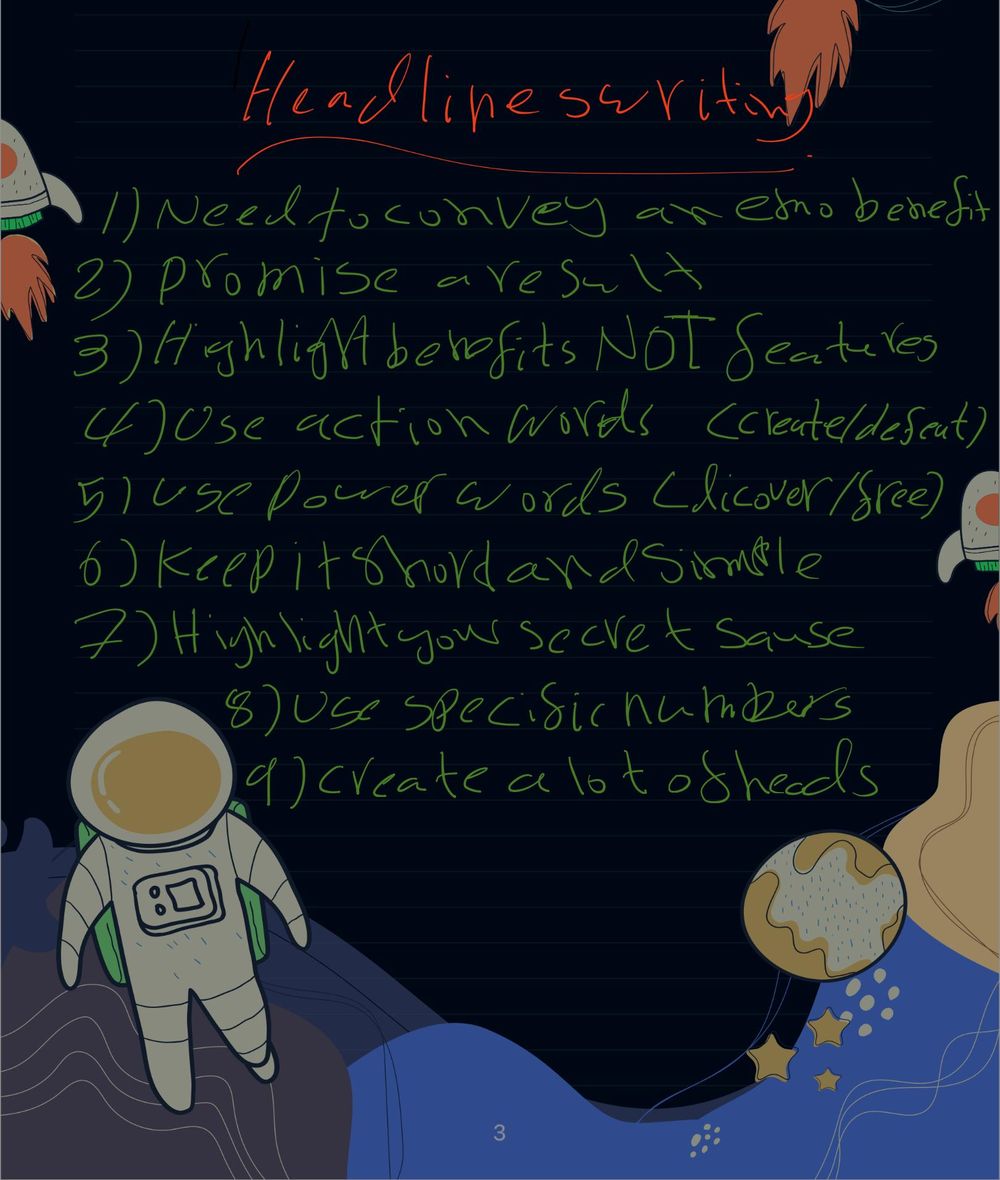 Headlines writing
1) Need to convey an emo benefit
2) promise a result
3) Highlight benefits NOT features
4) Use action words (create/defeat)
5) use power words (dicover/free)
6) Keep it shord and simple
7) Highlight your secret sause
8) Use specific numbers
9) create a lot of heads
3